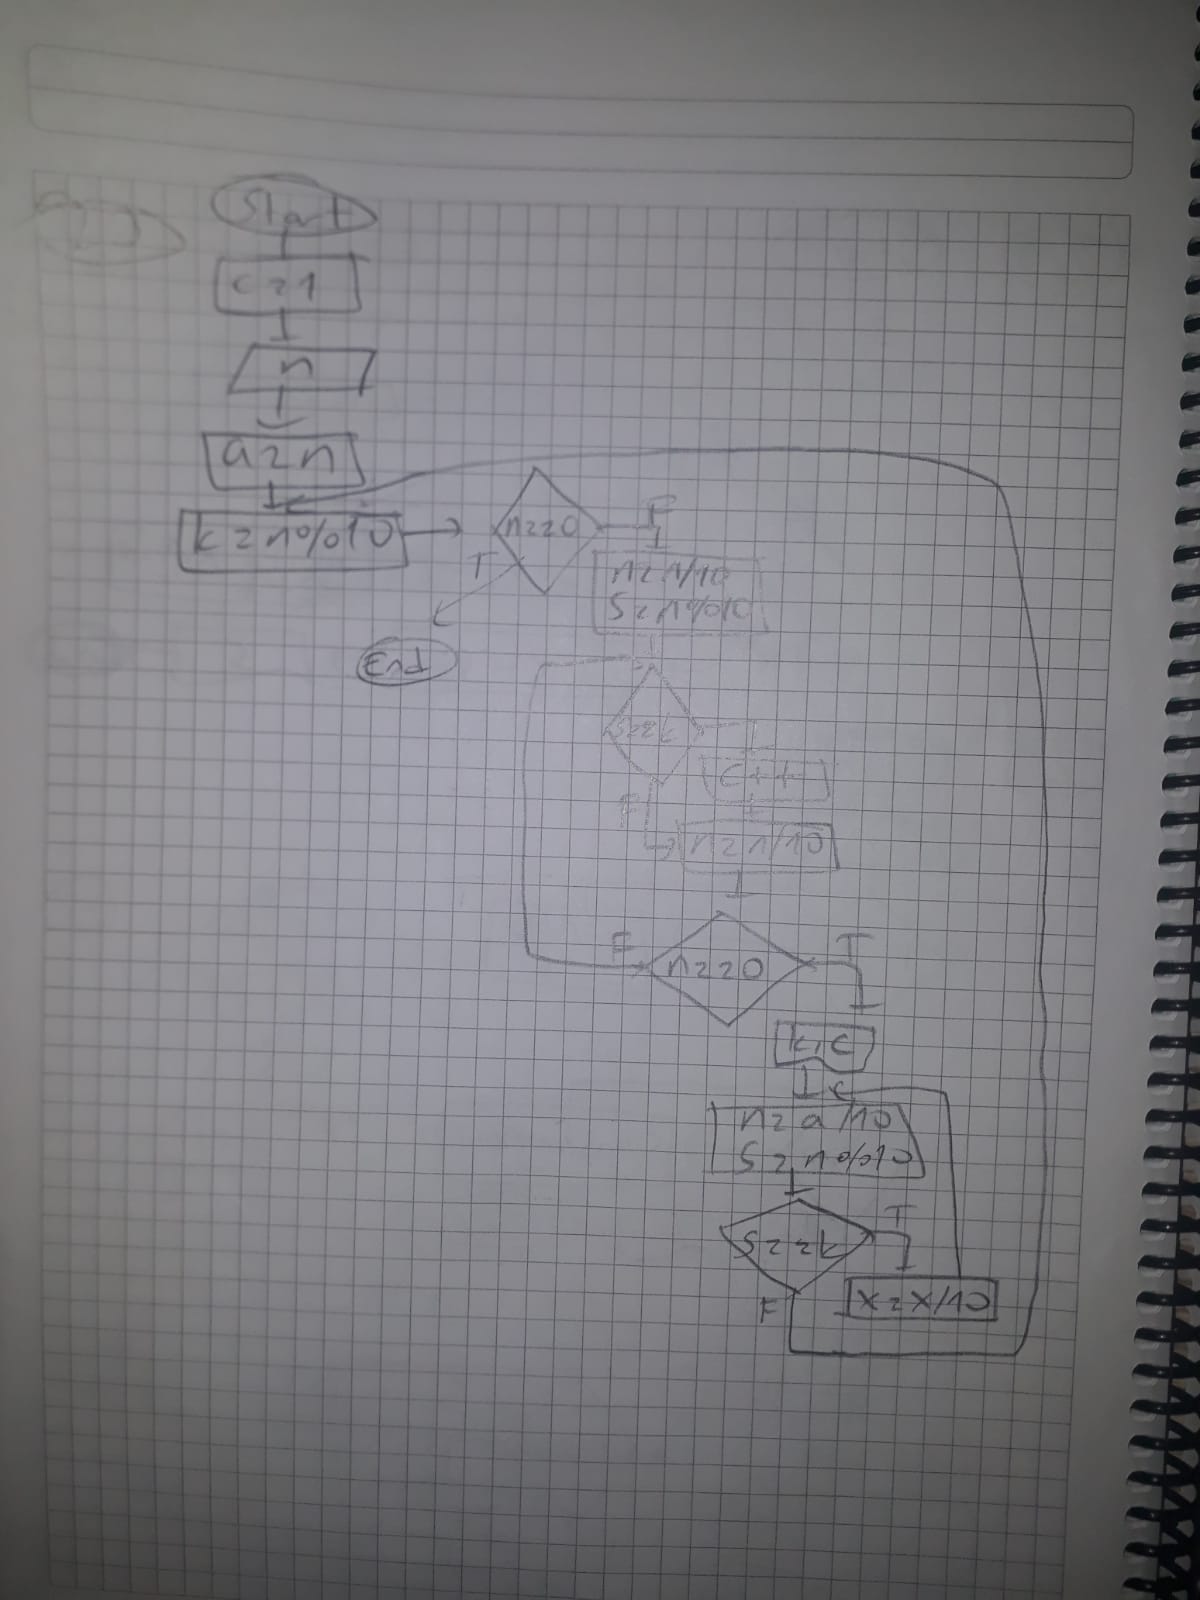 Start
c=1
n
a=n
k=n%10
n==0
F
T
n=n/10
S=n%10
End
S==k
c++
F
n=n/10
F
n==0
T
k,c
n=a/10
S=n%10
S==k
T
F
x=x/10